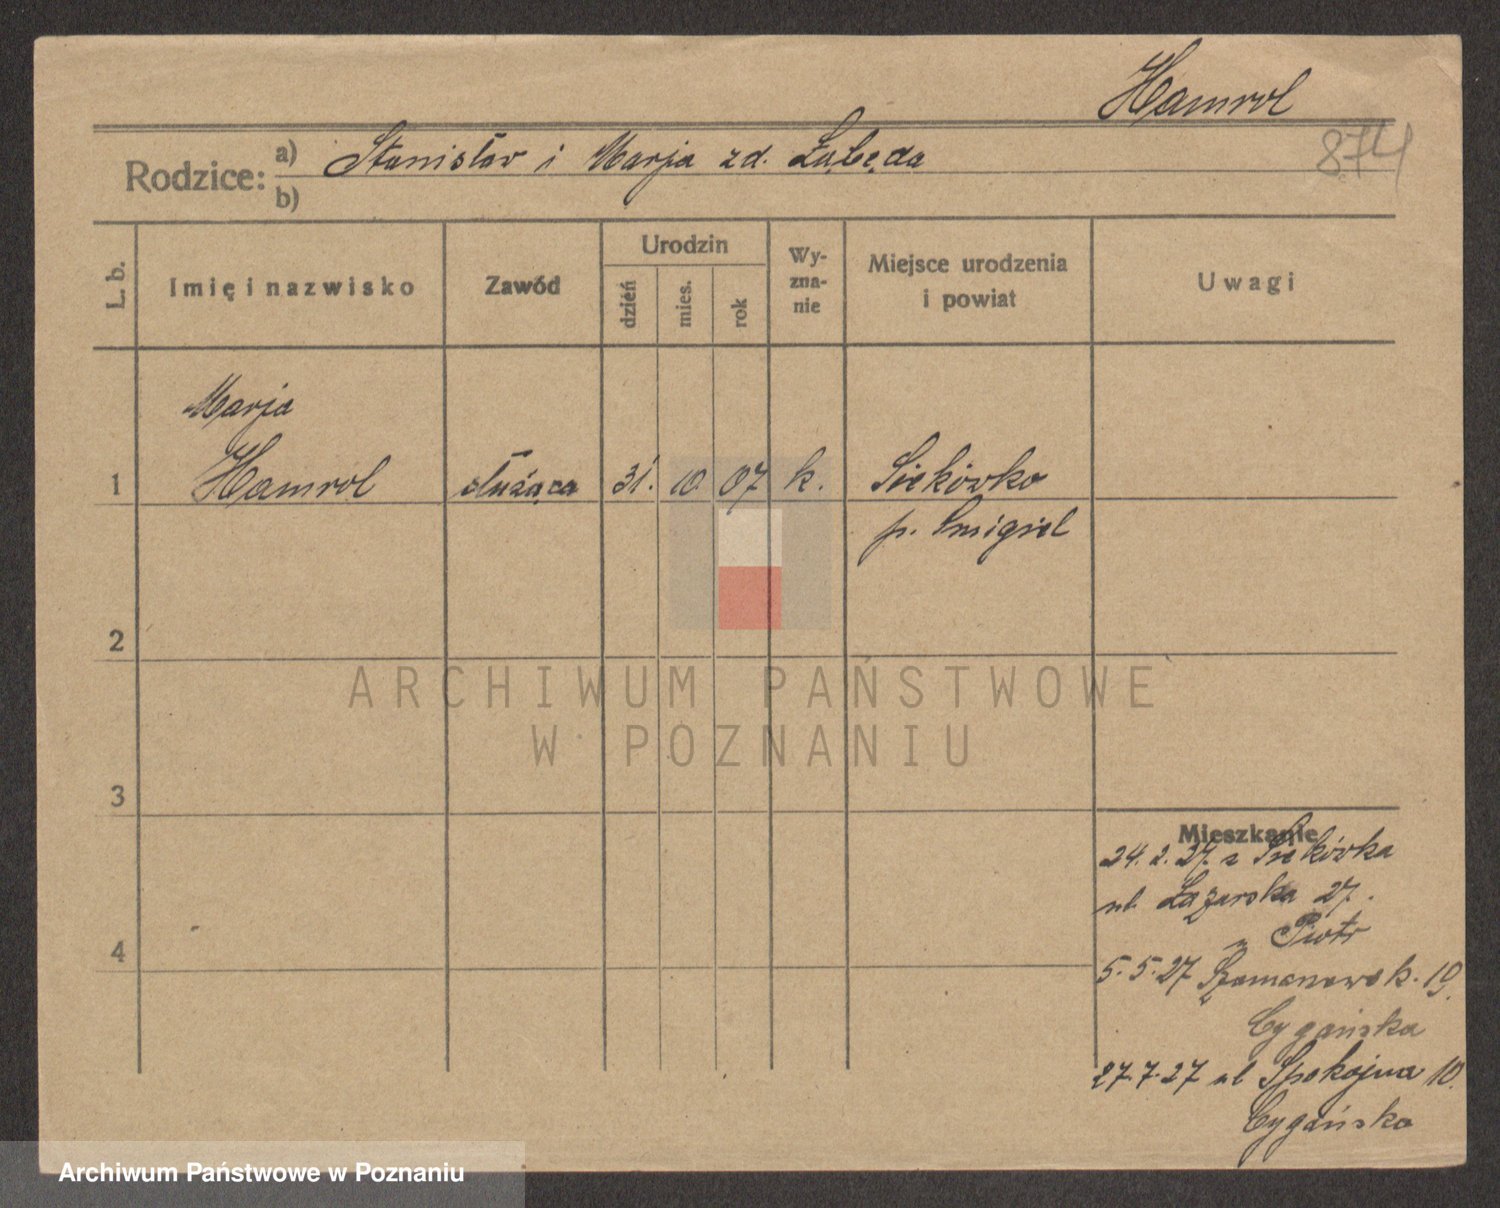 Hamrol
874
Rodzice: a) Stanisław i Marja zd. Łabęda
b)
L. b. Imię i nazwisko Zawód Urodzin dzień mies. rok Wy- zna- nie Miejsce urodzenia i powiat Uwagi
Marja
1 Hamrol służąca 31. 10 07 k. Siekówko
p. Śmigiel
2
ARCHIWUM PAŃSTWOWE
W POZNANIU
3
Mieszkanie
24. 2. 27. z Siekówka
ul. Łazarska 27.
Piotr
4
5. 5. 27 Szamanowsk. 19.
Cygańska
27. 7. 27 ul Spokojna 10.
Cygańska
Archiwum Państwowe w Poznaniu